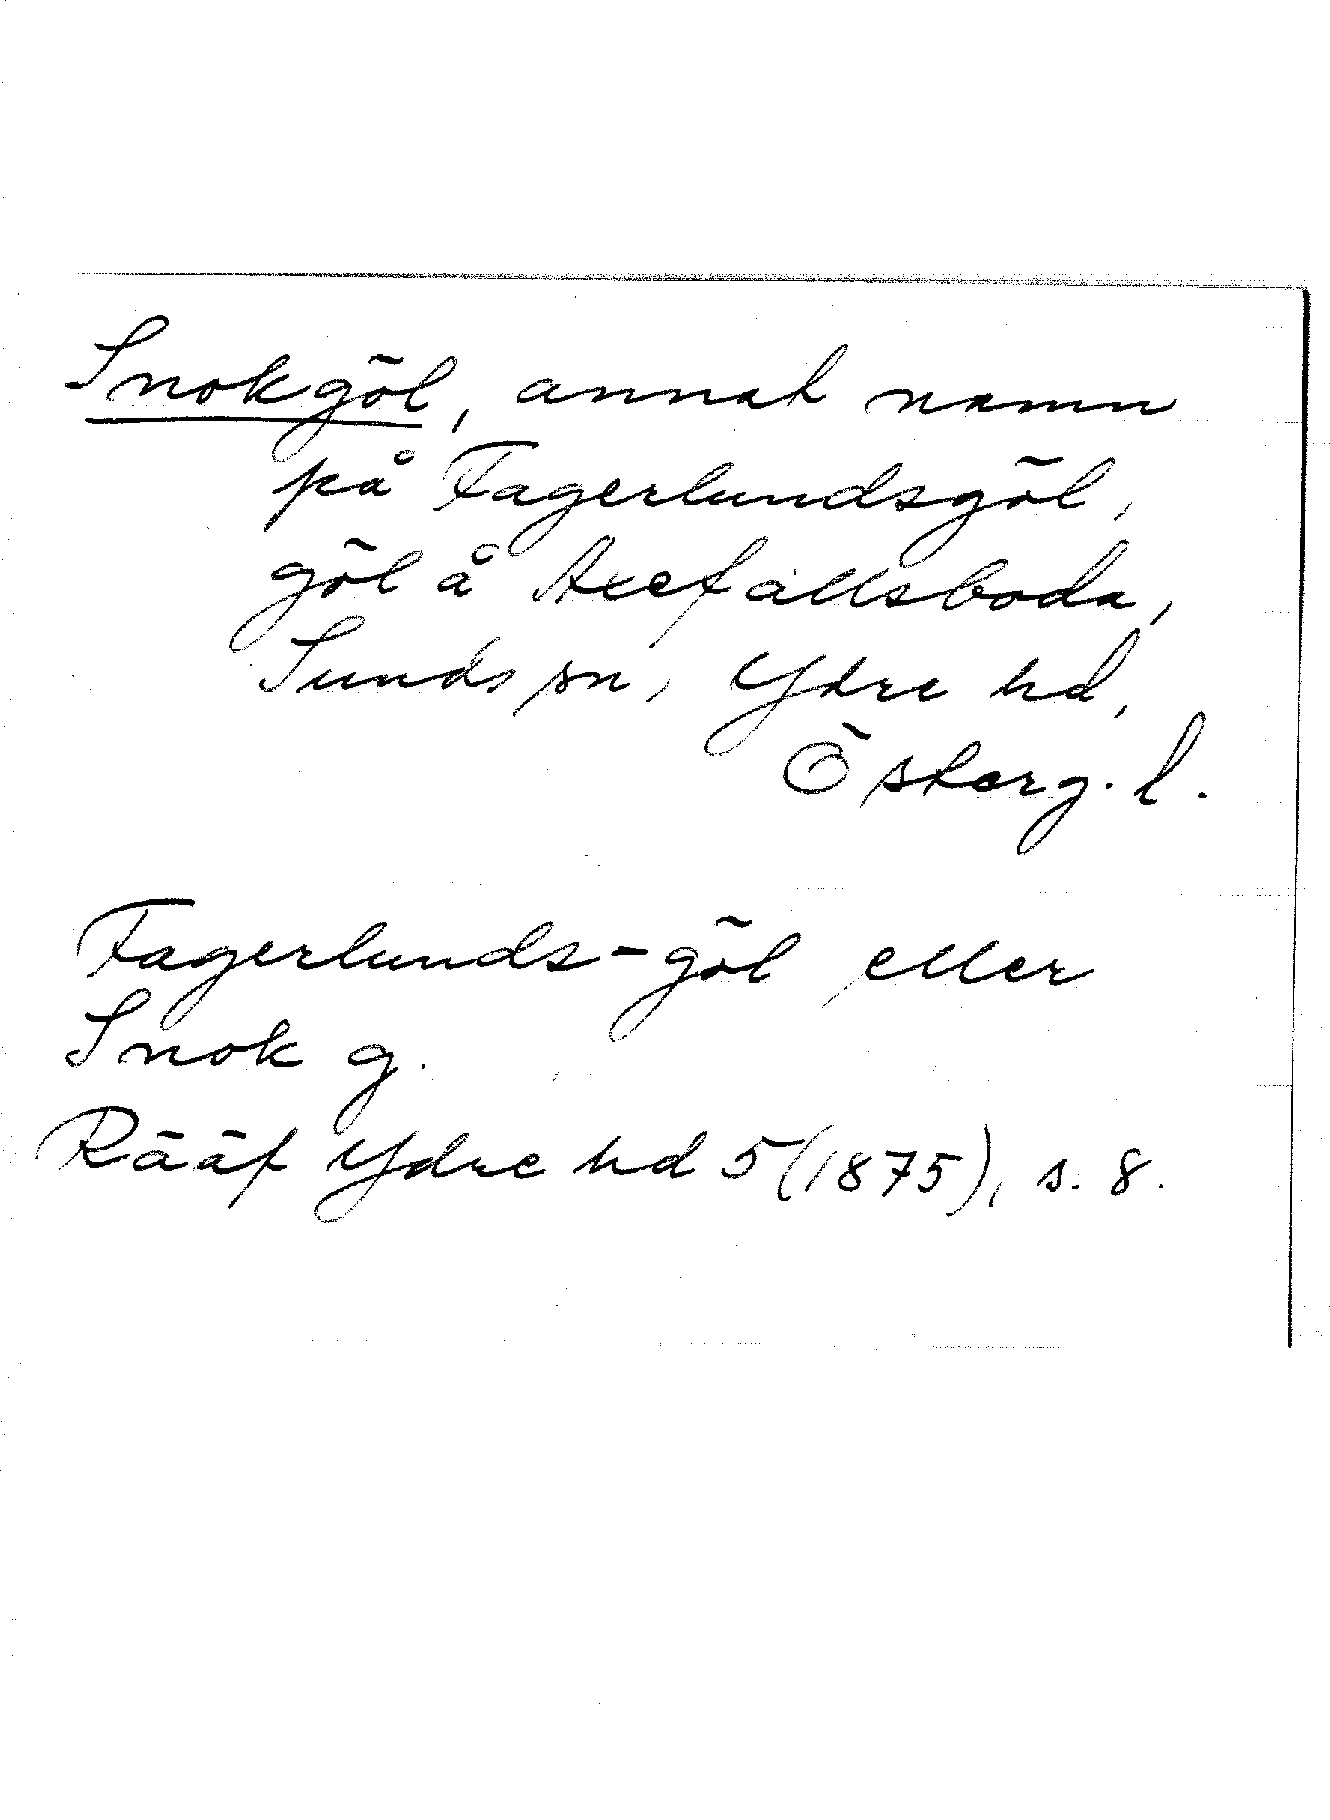 Snokgöl, annat namn
på Fagerlundsgöl,
göl å Axefallsboda,
Sunds sn, Ydre hd,
Österg. l.
Fagerlunds-göl eller
Snok g.
Rääf Ydre hd 5 (1875), s. 8.